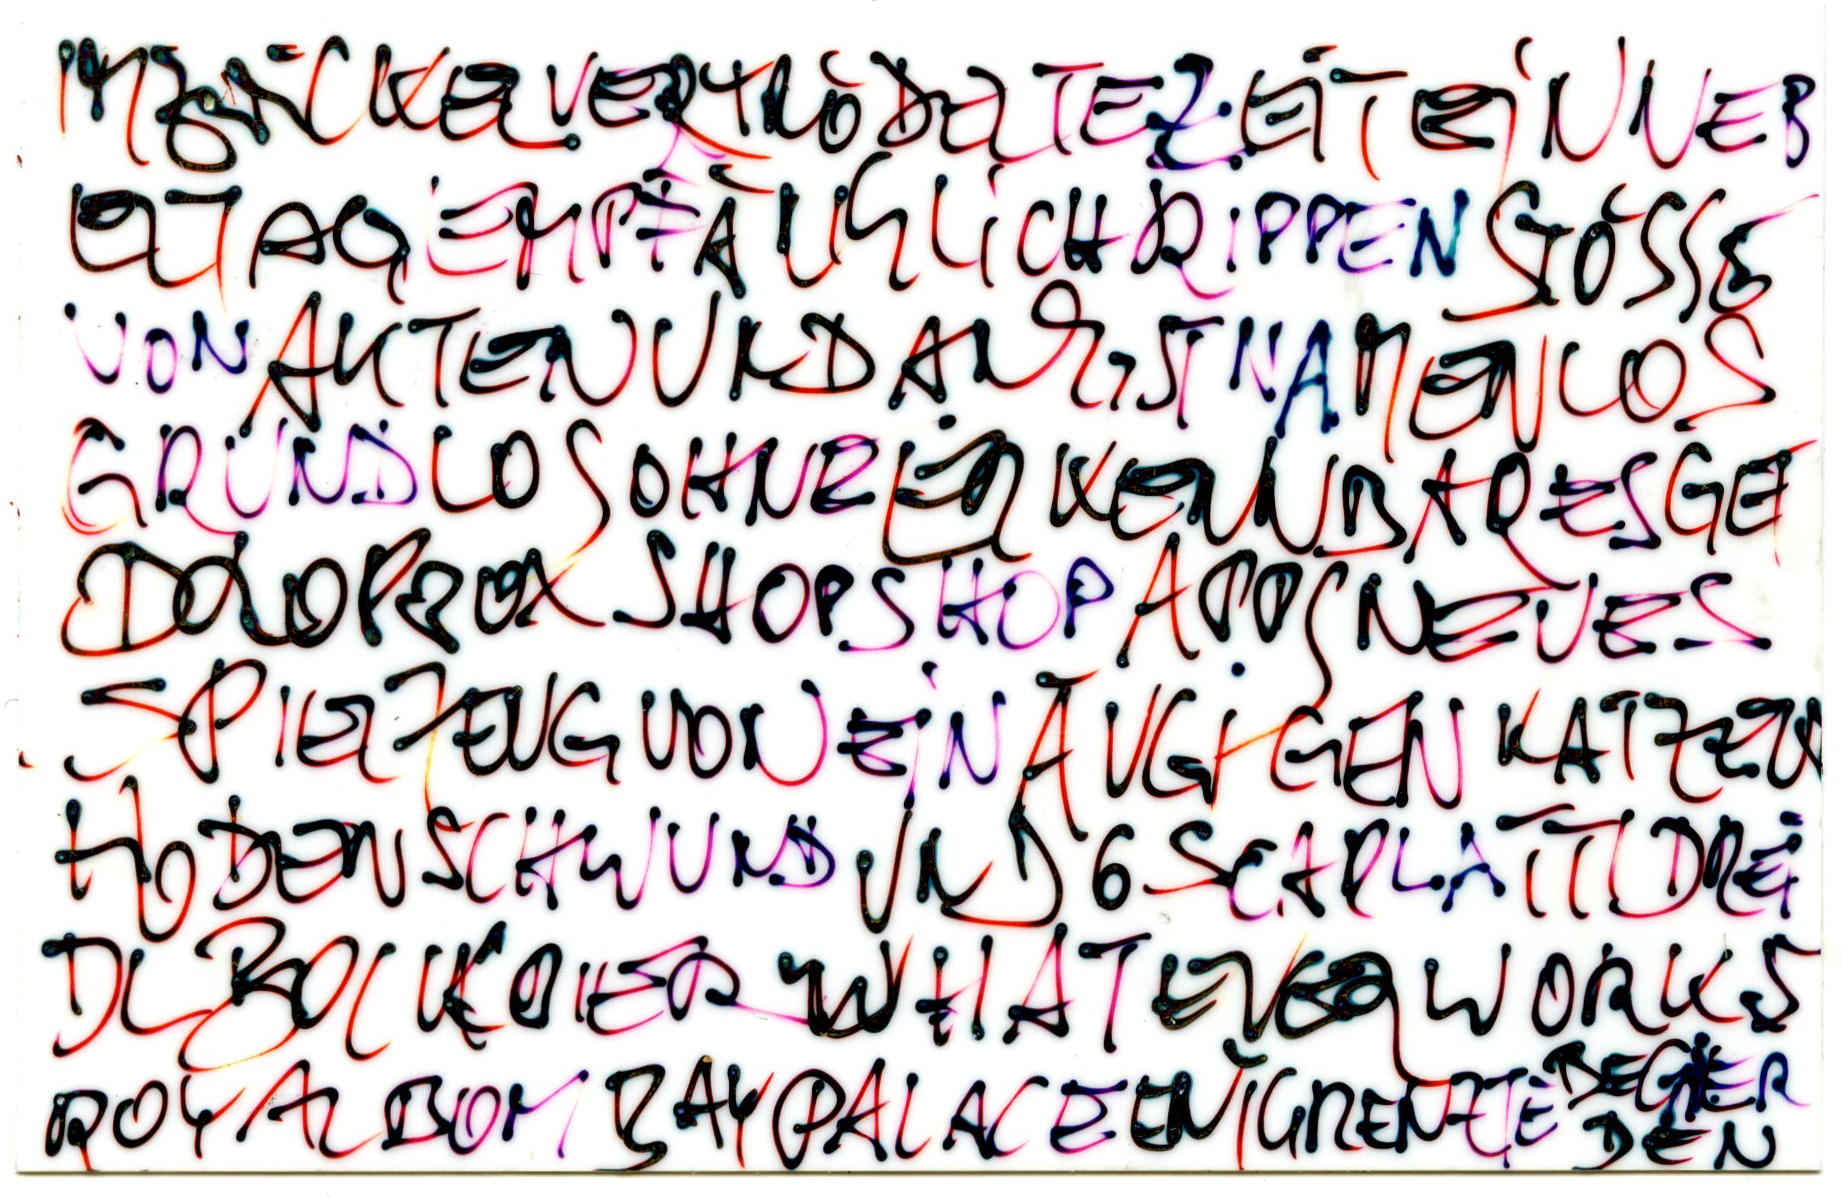 IM BÄCKER VERTRÖDELTE ZEIT EIN NEB
ELTAG EMPFÄNGLICH RIPPENSTÖSSE
VON AKTEN UND ANGST NAMENLOS
GRUNDLOS OHNE ERKENNBARES GE
DOLOPROX SHOP SHOP APPS NEUES
SPIELZEUG VON EINÄUGIGEN KATZEN
HODENSCHWUND UND 6 SCARLATTI DREI
DL BOCKBIER WHATEVER WORKS
ROYAL BOMBAY PALACE ENTGRENZTE BEGIER
DEN